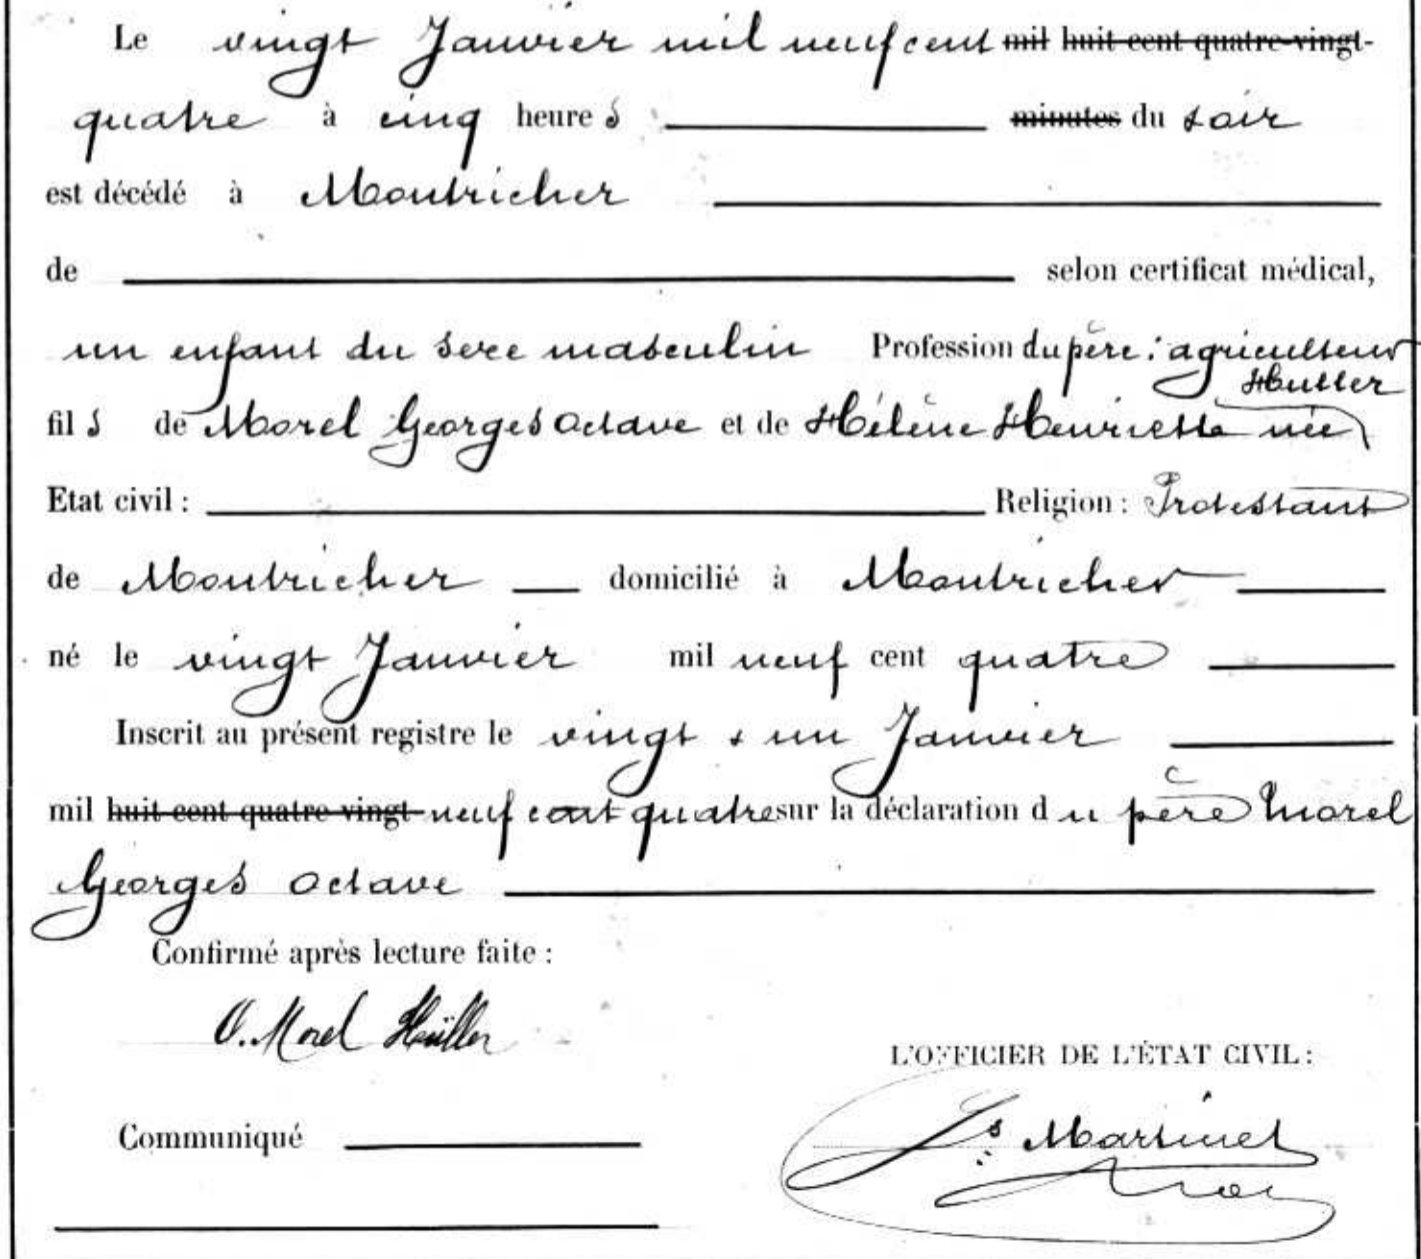 Le vingt Janvier mil neuf cent mil huit cent quatre-vingt-
quatre à cinq heures minutes du soir
est décédé à Montricher
de selon certificat médical,
un enfant du sexe masculin Profession du père : agriculteur
Huller
fils de Morel Georges Octave et de Hélène Henriette née
Etat civil : Religion : Protestant
de Montricher domicilié à Montricher
né le vingt Janvier mil neuf cent quatre
Inscrit au présent registre le vingt & un Janvier
mil huit cent quatre-vingt- neuf cent quatre sur la déclaration du père Morel
Georges Octave
Confirmé après lecture faite :
O. Morel Hüller
L'OFFICIER DE L'ÉTAT CIVIL :
Communiqué
Ls Martinet